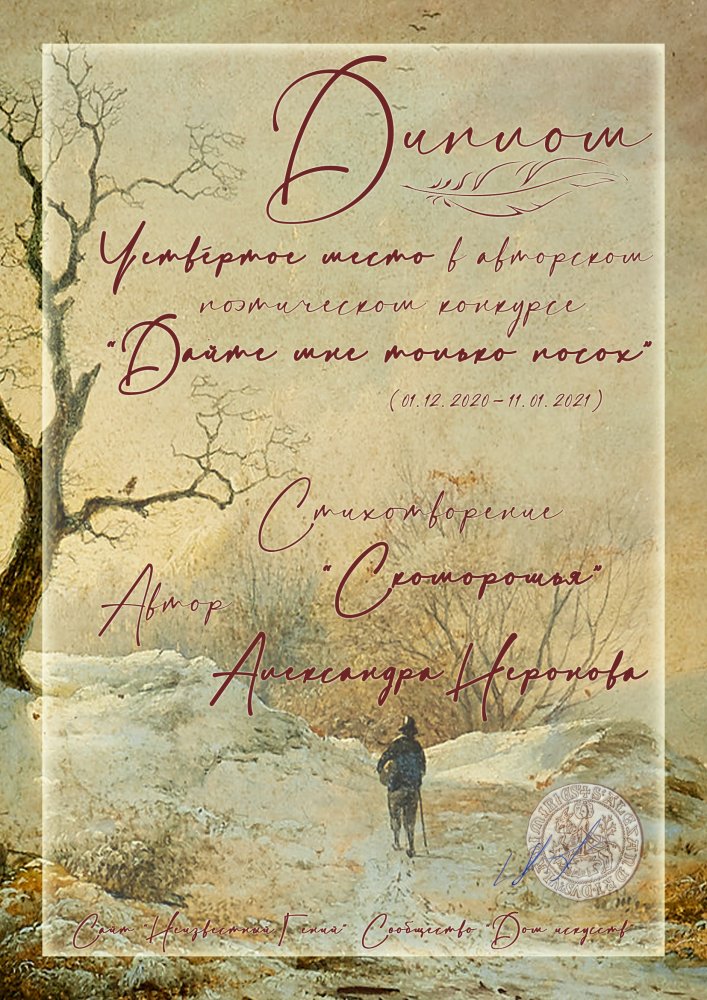 Диплом
Четвёртое место в авторском
поэтическом конкурсе
"Дайте мне только посох"
(01.12.2020-11.01.2021)
Стихотворение
"Скоморошья"
Автор
Александра Неронова
Сайт "Неизвестный Гений" Сообщество "Дом искусств"